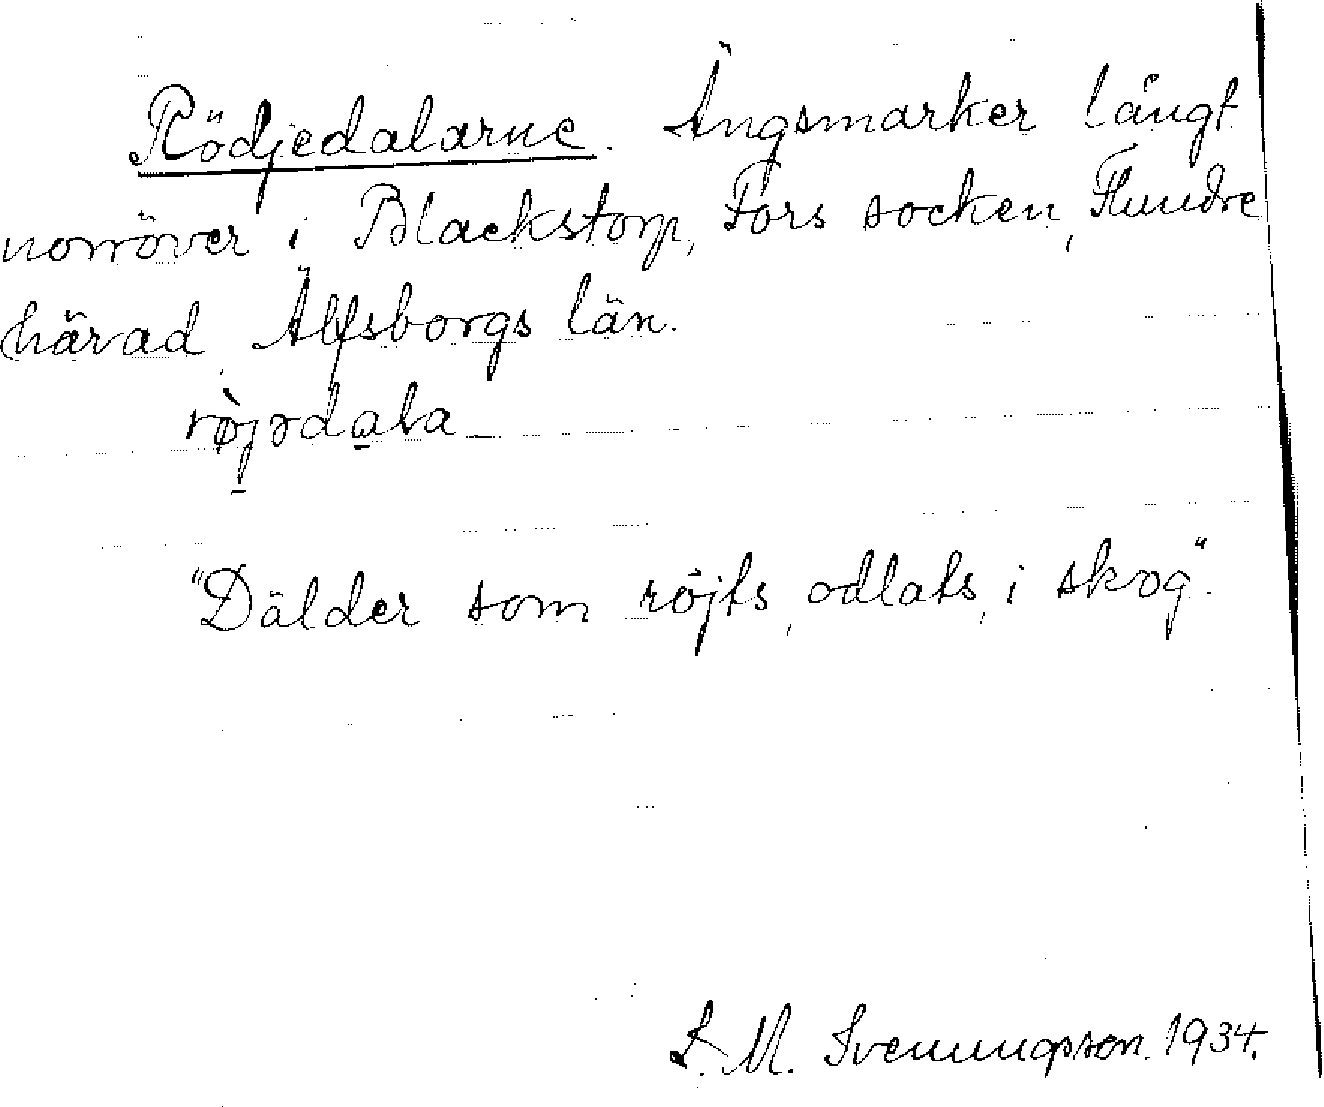 Rödjedalarne. Ängsmarker långt
norröver i Blackstorp, Fors socken, Flundre
härad, Älfsborgs län.
rø̀jədala
"Dälder som röjts, odlats, i skog".
S. M. Svenungsson. 1934.